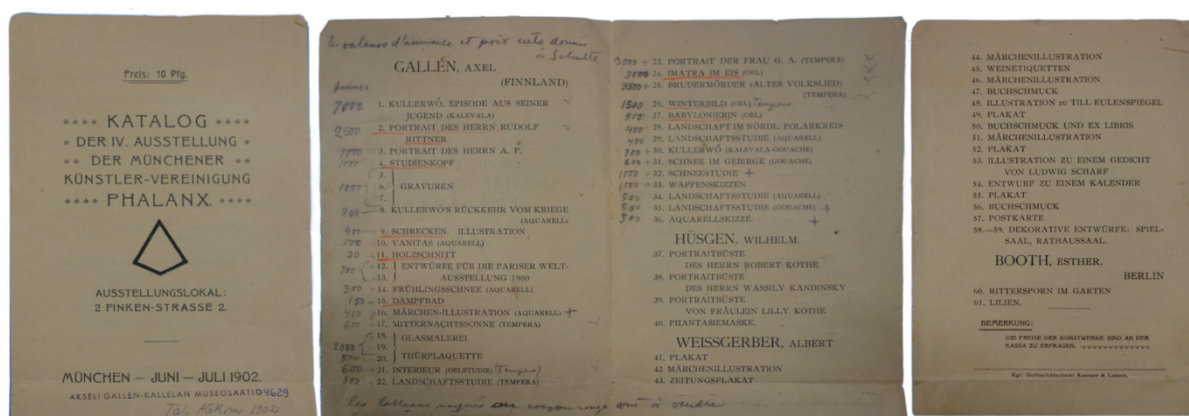 Preis: 10 Pfg.
KATALOG
DER IV. AUSSTELLUNG
DER MÜNCHENER
KÜNSTLER-VEREINIGUNG
PHALANX.
AUSSTELLUNGSLOKAL:
2 FINKEN-STRASSE 2.
MÜNCHEN — JUNI — JULI 1902.
AKSELI GALLEN-KALLELAN MUSEOSAATIO 4629
1902
le valeurs d'annonce et prix nets donnés
à Schulte
GALLÉN, AXEL
(FINNLAND)
7000 1. KULLERWÓ, EPISODE AUS SEINER
JUGEND (KALEVALA)
2500 2. PORTRAIT DES HERRN RUDOLF
RITTNER
1000 3. PORTRAIT DES HERRN A. P.
4. STUDIENKOPF
5.
1000 6. GRAVUREN
7.
800 8. KULLERWÓ'S RÜCKKEHR VOM KRIEGE
(AQUARELL)
400 9. SCHRECKEN. ILLUSTRATION
500 10. VANITAS (AQUARELL)
11. HOLZSCHNITT
700 12. ENTWÜRFE FÜR DIE PARISER WELT-
13. AUSSTELLUNG 1900
300 14. FRÜHLINGSSCHNEE (AQUARELL)
150 15. DAMPFBAD
400 16. MÄRCHEN-ILLUSTRATION (AQUARELL) +
600 17. MITTERNACHTSSONNE (TEMPERA)
18. GLASMALEREI
2000 19.
500 20. THÜRPLAQUETTE
600 21. INTERIEUR (OELSTUDIE) (Tempera)
500 22. LANDSCHAFTSSTUDIE (TEMPERA)
les tableaux marqués au crayon rouge sont à vendre
3000 + 23. PORTRAIT DER FRAU G. A. (TEMPERA)
3000 24. IMATRA IM EIS (OEL)
3500 + 25. BRUDERMÖRDER (ALTES VOLKSLIED)
(TEMPERA)
1500 26. WINTERBILD (OEL) Tempera
800 27. BABYLONIERIN (OEL)
400 28. LANDSCHAFT IM NÖRDL. POLARKREIS
400 29. LANDSCHAFTSSTUDIE (AQUARELL)
700 + 30. KULLERWÓ (KALEVALA-GOUACHE)
600 + 31. SCHNEE IM GEBIRGE (GOUACHE)
1000 32. SCHNEESTUDIE +
1000 33. WAPPENSKIZZEN
500 34. LANDSCHAFTSSTUDIE (AQUARELL)
500 35. LANDSCHAFTSSTUDIE (GOUACHE) +
500 36. AQUARELLSKIZZE. +
HÜSGEN, WILHELM.
37. PORTRAITBÜSTE
DES HERRN ROBERT KOTHE
38. PORTRAITBÜSTE
DES HERRN WASSILY KANDINSKY
39. PORTRAITBÜSTE
VON FRÄULEIN LILLY KOTHE
40. PHANTASIEMASKE.
WEISSGERBER, ALBERT
41. PLAKAT
42 MÄRCHENILLUSTRATION
43. ZEITUNGSPLAKAT
44. MÄRCHENILLUSTRATION
45. WEINETIQUETTEN
46. MÄRCHENILLUSTRATION
47. BUCHSCHMUCK
48. ILLUSTRATION zu TILL EULENSPIEGEL
49. PLAKAT
50. BUCHSCHMUCK UND EX LIBRIS
51. MÄRCHENILLUSTRATION
52. PLAKAT
53. ILLUSTRATION ZU EINEM GEDICHT
VON LUDWIG SCHARF
54. ENTWURF ZU EINEM KALENDER
55. PLAKAT
56. BUCHSCHMUCK
57. POSTKARTE
58.—59. DEKORATIVE ENTWÜRFE: SPIEL-
SAAL, RATHAUSSAAL.
BOOTH, ESTHER.
BERLIN
60. RITTERSPORN IM GARTEN
61. LILIEN.
BEMERKUNG:
DIE PREISE DER KUNSTWERKE SIND AN DER
KASSA ZU ERFRAGEN.
Kgl. Hofbuchdruckerei Kastner & Lossen.